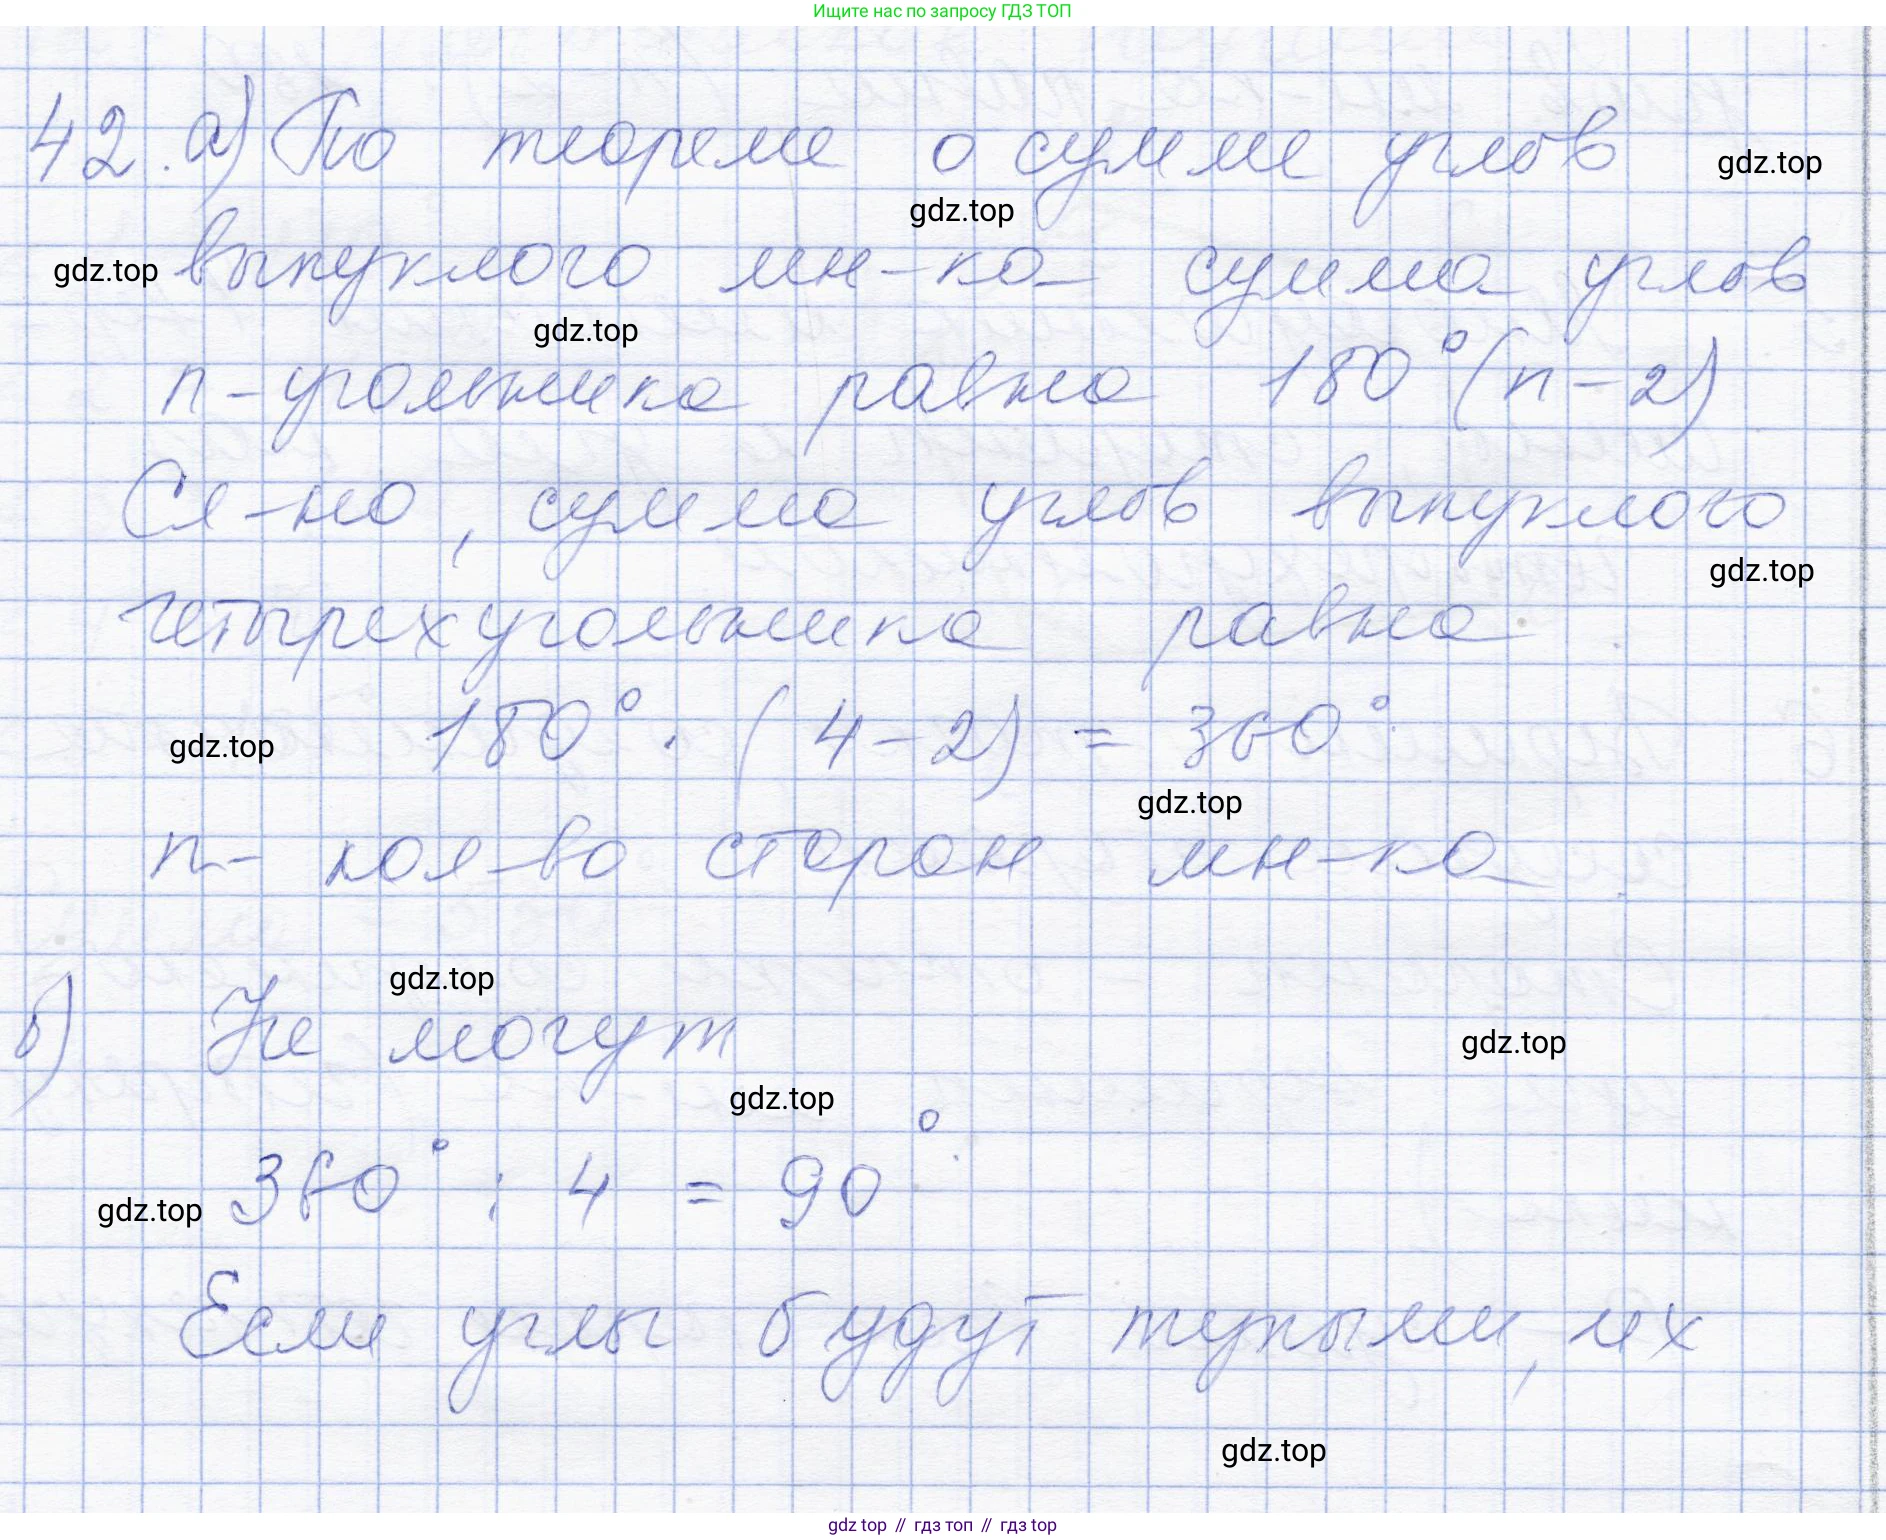 Ищите нас по запросу ГДЗ ТОП
42. а) По теореме о сумме углов
gdz.top
gdz.top
gdz.top
выпуклого мн-ка сумма углов
gdz.top
n-угольника равна 180°(n-2)
Сл-но, сумма углов выпуклого
gdz.top
четырехугольника равна
gdz.top
180° · (4-2) = 360°
gdz.top
n- кол-во сторон мн-ка
gdz.top
б) Не могут
gdz.top
gdz.top
gdz.top
360° : 4 = 90°
Если углы будут тупыми, их
gdz.top
gdz top // гдз топ // гдз top